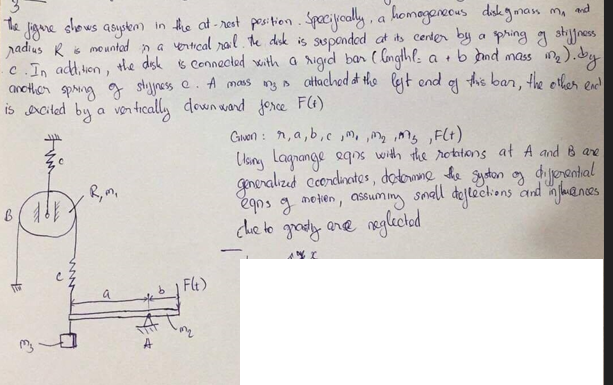 3
The figure shows asystem in the at-rest position. Specifically, a homogeneous disk g mass m, and
radius R is mounted in a vertical rail. the disk is suspended at its center by a spring g stiffness
c. In addition, the disk is connected with a rigid bar (length l = a + b and mass m₂). by
another spring g stiffness c. A mass m₃ is attached at the left end of this bar, the other end
is excited by a vertically downward force F(t)
Given : r, a, b, c, m₁, m₂, m₃, F(t)
Using Lagrange eqns with the rotations at A and B are
generalized coordinates, determine the system og differential
eqns g motion, assuming small deflections and influences
due to gravity are neglected
c
R, m₁
B
c
a
b
F(t)
m₂
m₃
A